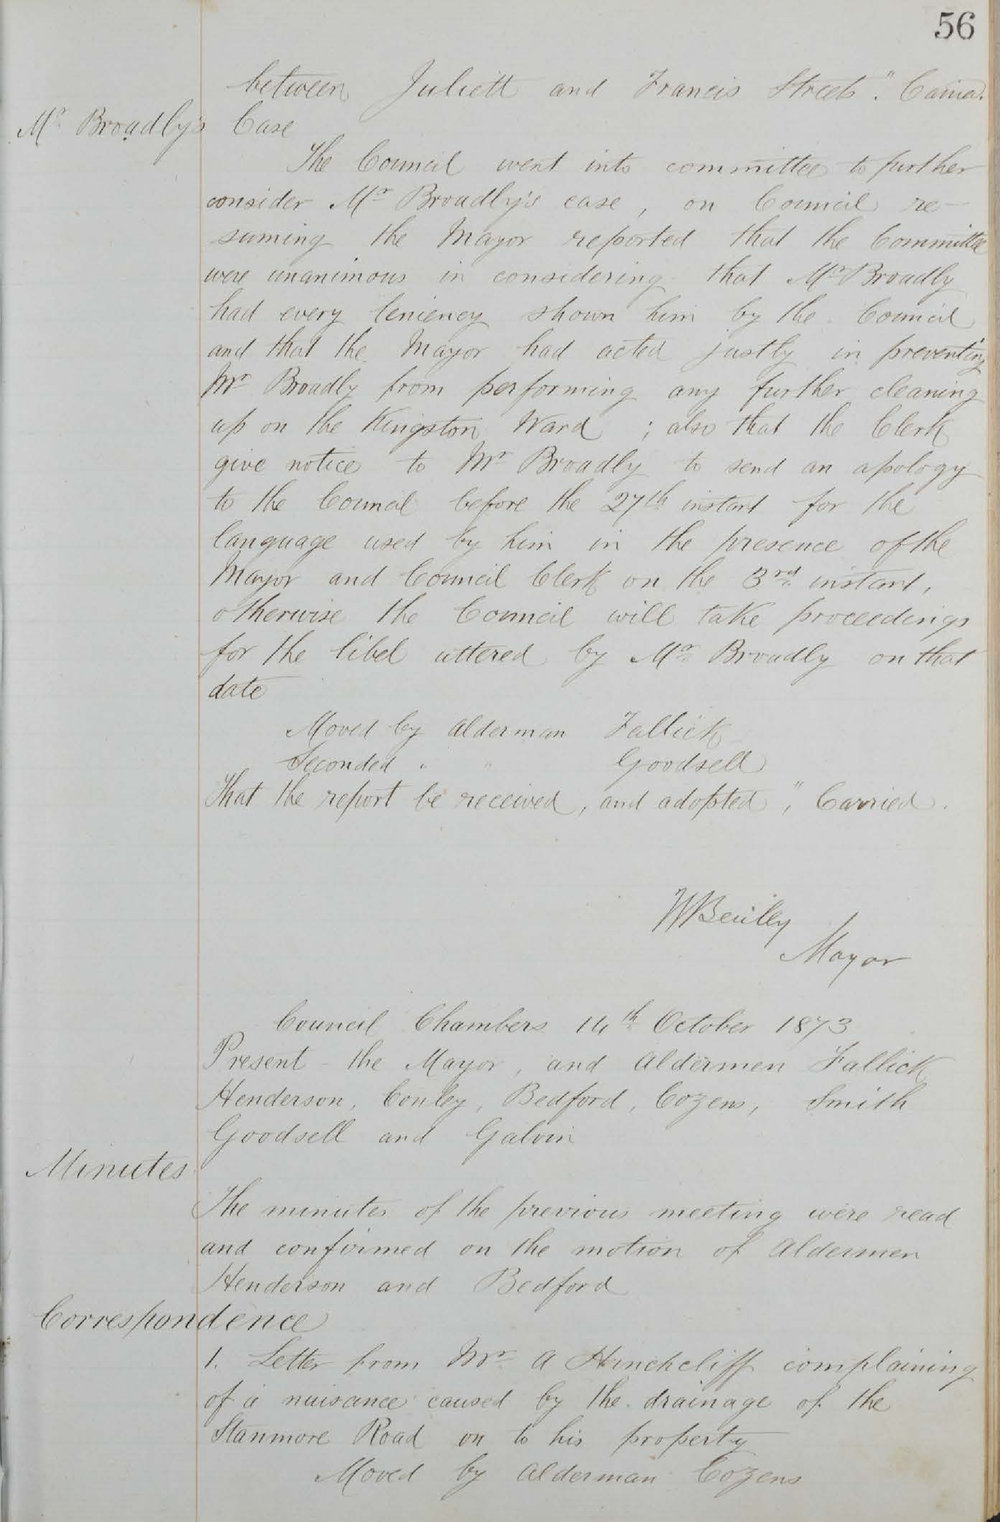 56
between Juliett and Francis Streets". Carried.
Mr Broadly's Case
The Council went into committee to further
consider Mr Broadly's case, on Council re-
suming the Mayor reported that the Committee
were unanimous in considering that Mr Broadly
had every leniency shown him by the Council
and that the Mayor had acted justly in preventing
Mr Broadly from performing any further cleaning
up on the Kingston Ward ; also that the Clerk
give notice to Mr Broadly to send an apology
to the Council before the 27th instant for the
language used by him in the presence of the
Mayor and Council Clerk on the 3rd instant,
otherwise the Council will take proceedings
for the libel uttered by Mr Broadly on that
date
Moved by Alderman Fallick
Seconded " " Goodsell
That the report be received, and adopted", Carried.
Mayor
Council Chambers 14th October 1873
Present - the Mayor, and Aldermen Fallick
Henderson, Conley, Bedford, Cozens, Smith
Goodsell and Galvin
Minutes
The minutes of the previous meeting were read
and confirmed on the motion of Aldermen
Henderson and Bedford
Correspondence
1. Letter from Mr A Hinchcliff complaining
of a nuisance caused by the drainage of the
Stanmore Road on to his property
Moved by Alderman Cozens